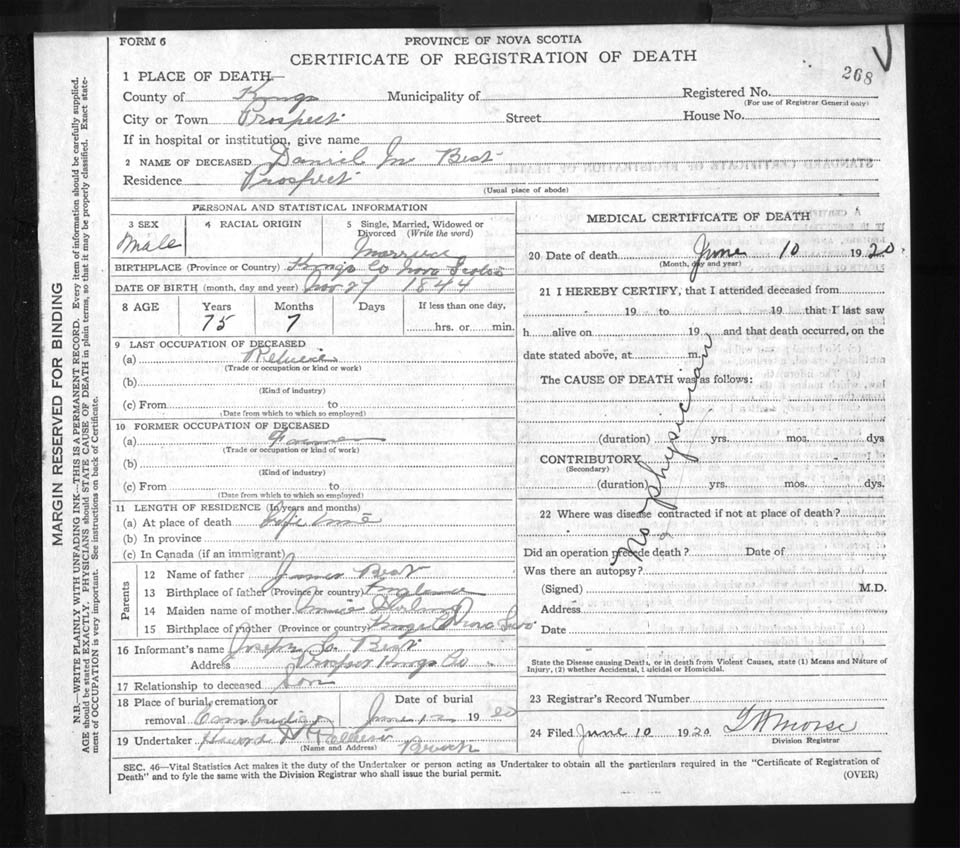 FORM 6
PROVINCE OF NOVA SCOTIA
CERTIFICATE OF REGISTRATION OF DEATH
268
1 PLACE OF DEATH—
County of Kings Municipality of Registered No.
(For use of Registrar General only)
City or Town Prospect Street House No.
If in hospital or institution, give name
2 NAME OF DECEASED Daniel M Best
Residence Prospect
(Usual place of abode)
PERSONAL AND STATISTICAL INFORMATION
3 SEX 4 RACIAL ORIGIN 5 Single, Married, Widowed or Divorced (Write the word)
Male Married
BIRTHPLACE (Province or Country) Kings Co Nova Scotia
DATE OF BIRTH (month, day and year) Nov 27 1844
8 AGE Years Months Days If less than one day,
75 7 hrs. or min.
9 LAST OCCUPATION OF DECEASED
(a)
(Trade or occupation or kind or work)
(b)
(Kind of industry)
(c) From to
(Date from which to which so employed)
10 FORMER OCCUPATION OF DECEASED
(a) Farmer
(Trade or occupation or kind of work)
(b)
(Kind of industry)
(c) From to
(Date from which to which so employed)
11 LENGTH OF RESIDENCE (In years and months)
(a) At place of death Life time
(b) In province
(c) In Canada (if an immigrant)
Parents
12 Name of father James Best
13 Birthplace of father (Province or country) England
14 Maiden name of mother
15 Birthplace of mother (Province or country) Kings Co Nova Sco
16 Informant's name Joseph Best
Address Prospect Kings Co
17 Relationship to deceased Son
18 Place of burial, cremation or Date of burial
removal June 12 1920
19 Undertaker Howard
(Name and Address)
MEDICAL CERTIFICATE OF DEATH
20 Date of death June 10 1920.
(Month, day and year)
21 I HEREBY CERTIFY, that I attended deceased from
19 to 19 that I last saw
h alive on 19 and that death occurred, on the
date stated above, at m.
The CAUSE OF DEATH was as follows:
no physician
(duration) yrs. mos. dys
CONTRIBUTORY
(Secondary)
(duration) yrs. mos. dys.
22 Where was disease contracted if not at place of death?
Did an operation precede death? Date of
Was there an autopsy?
(Signed) M.D.
Address
Date
State the Disease causing Death, or in death from Violent Causes, state (1) Means and Nature of
Injury, (2) whether Accidental, Suicidal or Homicidal.
23 Registrar's Record Number
24 Filed June 10 1920 Morse
Division Registrar
SEC. 46—Vital Statistics Act makes it the duty of the Undertaker or person acting as Undertaker to obtain all the particulars required in the "Certificate of Registration of
Death" and to fyle the same with the Division Registrar who shall issue the burial permit. (OVER)
MARGIN RESERVED FOR BINDING
N.B.—WRITE PLAINLY WITH UNFADING INK—THIS IS A PERMANENT RECORD. Every item of information should be carefully supplied.
AGE should be stated EXACTLY. PHYSICIANS should STATE CAUSE OF DEATH in plain terms, so that it may be properly classified. Exact state-
ment of OCCUPATION is very important. See instructions on back of Certificate.